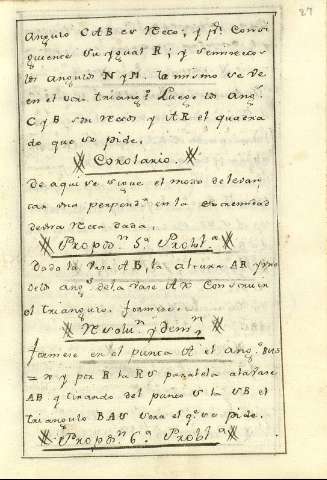 27
Angulo CAB es Recto; y pr. Consi
guiente su ygual R; y semirectos
los angulos N y M. lo mismo se ve
en el otro triangº. Luego los Angs.
C y B son Rectos y AR el quadra
do que se pide.
Corolario.
De aqui se sigue el modo de levan
tar una perpendr. en la extremidad
de una Recta dada.
Propon. 5ª Problª
Dada la vase AB, la altura AR y uno
de los angs. de la vase A x Construir
el triangulo. formese.
Resoluon. y demn.
formese en el punto A el angº. BAS
= x y por R la RS paralela a la vase
AB y tirando del punto S la SB el
triangulo BAS sera el qe. se pide.
Propon. 6ª Problª